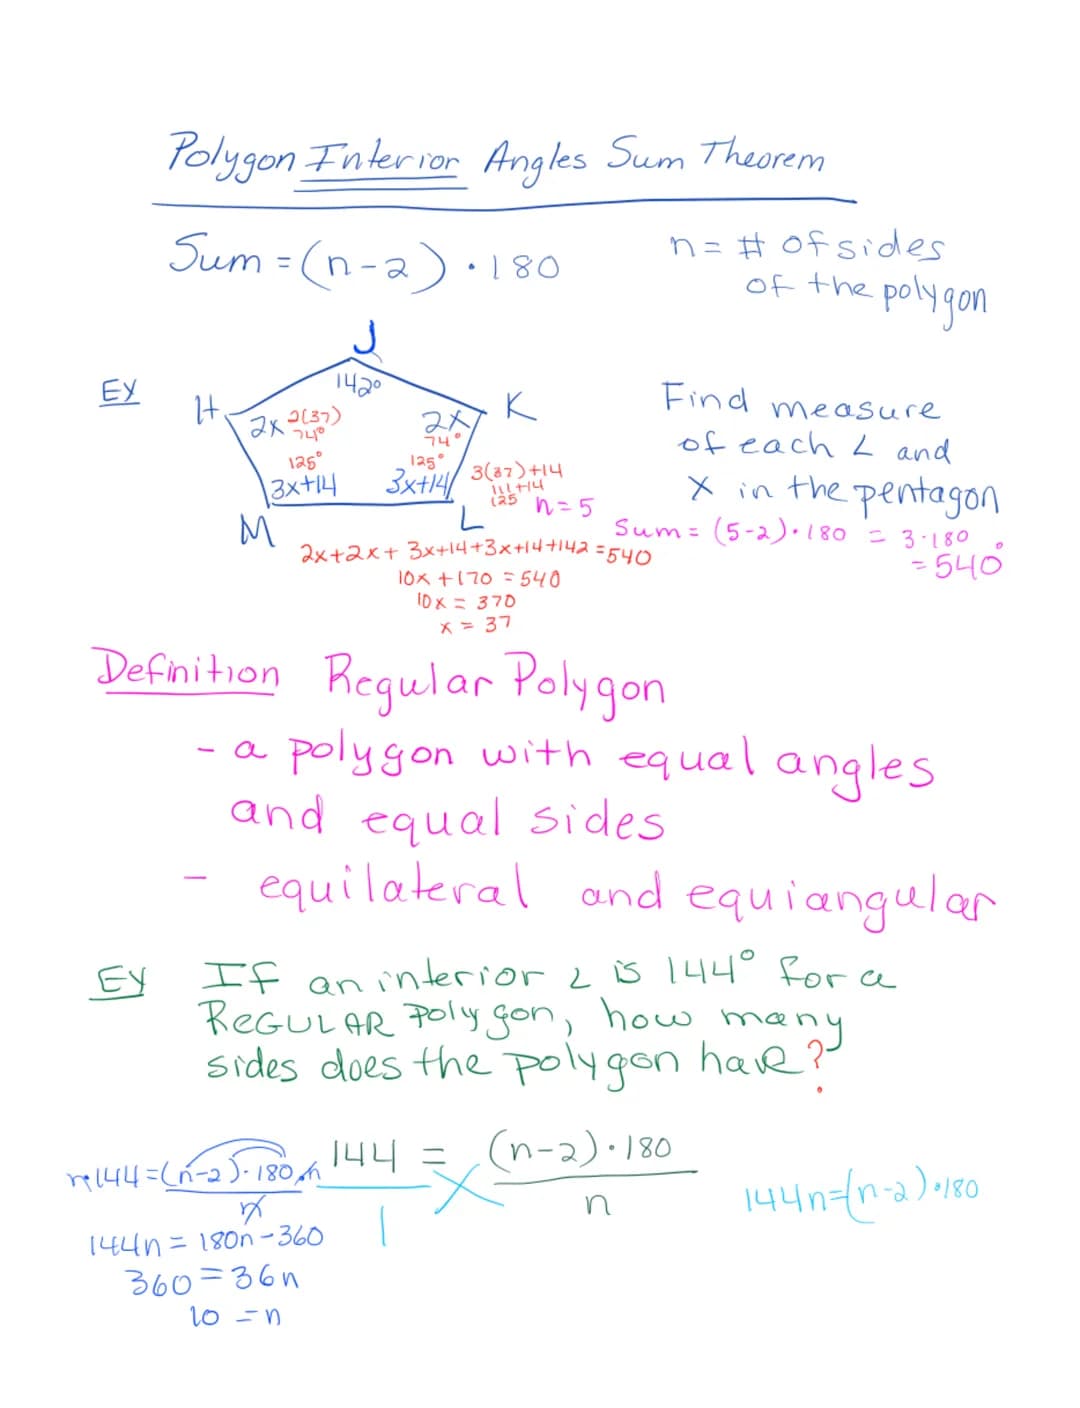 Polygon Interior Angles Sum Theorem
Sum = (n-2) · 180
n = # of sides
of the polygon
Ex
J
142°
H
K
2x 2(37)
74°
2x
74°
125°
125°
3x+14
3x+14
3(37)+14
111+14
125
M
L
n=5
Find measure
of each ∠ and
x in the pentagon
Sum = (5-2)·180 = 3·180
= 540°
2x+2x+3x+14+3x+14+142=540
10x+170=540
10x=370
x=37
Definition Regular Polygon
- a polygon with equal angles
and equal sides
- equilateral and equiangular
Ex If an interior ∠ is 144° for a
REGULAR Polygon, how many
sides does the polygon have?
n·144=(n-2)·180·n
n
144n=180n-360
360=36n
10=n
144 = (n-2)·180
1 n
144n=(n-2)·180